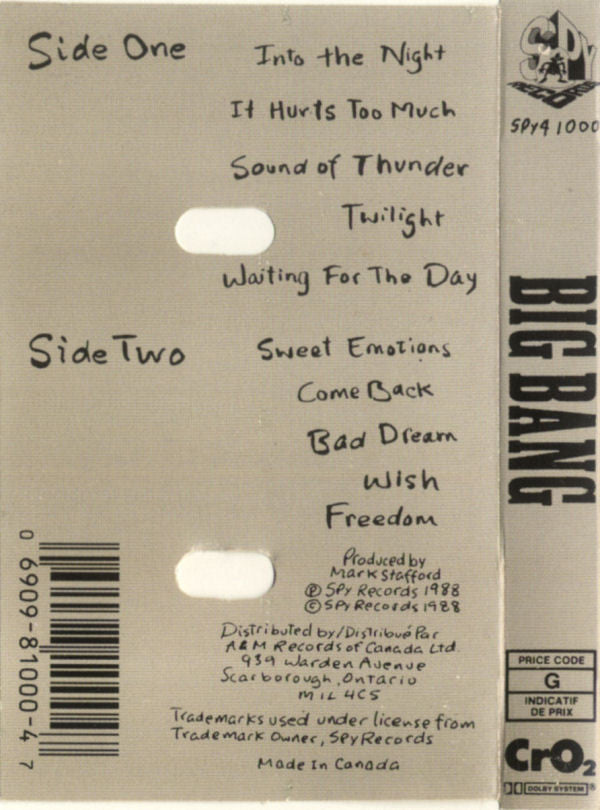 Side One
Into the Night
It Hurts Too Much
Sound of Thunder
Twilight
Waiting For The Day
Side Two
Sweet Emotions
Come Back
Bad Dream
Wish
Freedom
Produced by
Mark Stafford
Ⓟ Spy Records 1988
© Spy Records 1988
Distributed by/Distribué Par
A&M Records of Canada Ltd.
939 Warden Avenue
Scarborough, Ontario
M1L 4C5
Trademarks used under license from
Trademark Owner, Spy Records
Made In Canada
0 6909-81000-4 7
SPY
RECORDS
SPY4 1000
BIG BANG
PRICE CODE
G
INDICATIF
DE PRIX
CrO2
DOLBY SYSTEM®